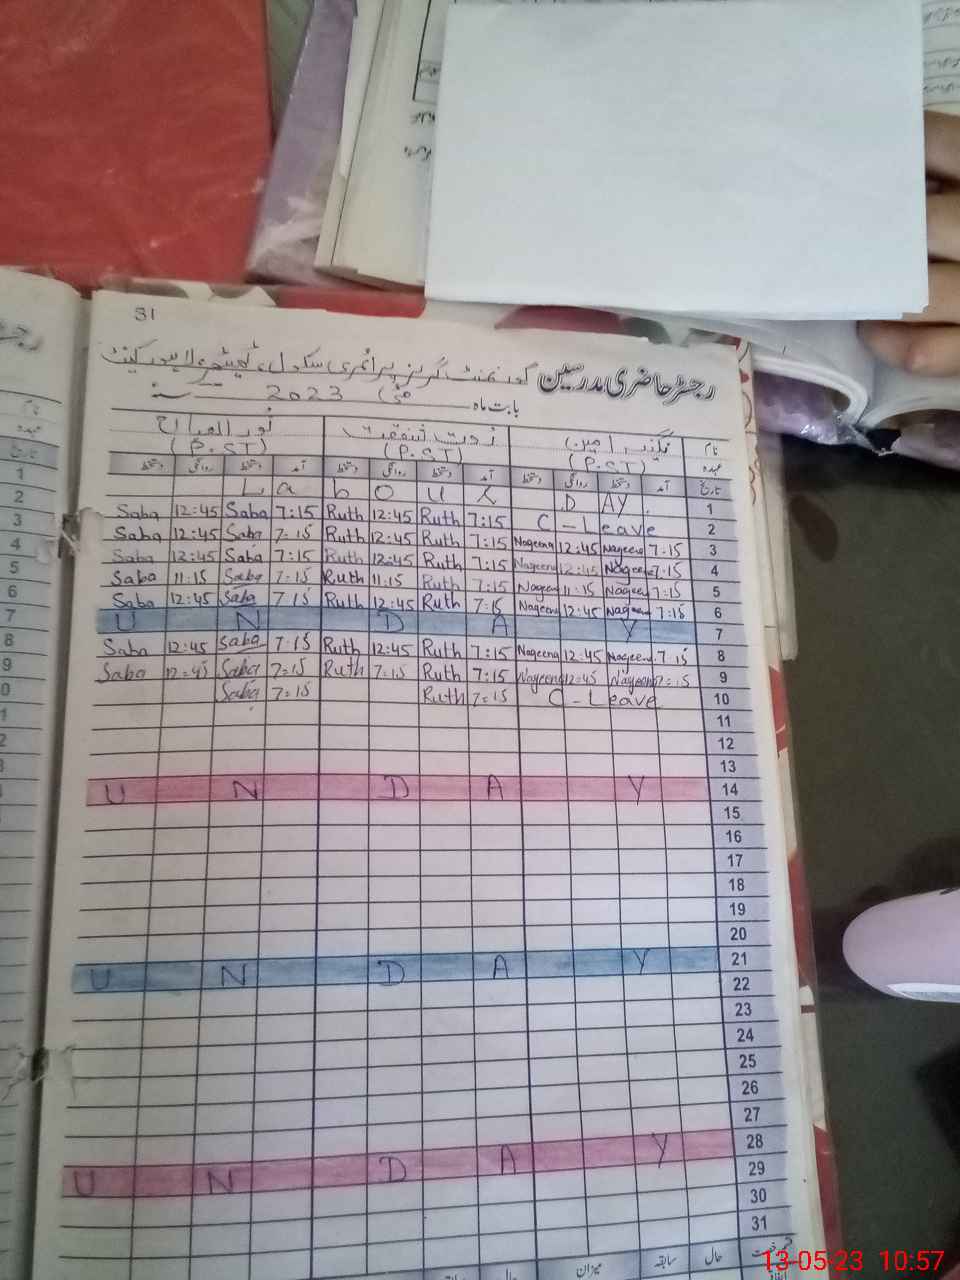 31
رجسٹر حاضری مدرسین گورنمنٹ گرلز پرائمری سکول
بابت ماہ مئی 2023
نام
عہدہ (P.S.T) (P.S.T) (P.S.T)
تاریخ آمد دستخط روانگی دستخط آمد دستخط روانگی دستخط آمد دستخط روانگی دستخط
L a b o u r D AY. 1
Saba 12:45 Saba 7:15 Ruth 12:45 Ruth 7:15 C - Leave 2
Saba 12:45 Saba 7:15 Ruth 12:45 Ruth 7:15 Nageena 12:45 Nageena 7:15 3
Saba 12:45 Saba 7:15 Ruth 12:45 Ruth 7:15 Nageena 12:45 Nageena 7:15 4
Saba 11:15 Saba 7:15 Ruth 11:15 Ruth 7:15 Nageena 11:15 Nageena 7:15 5
Saba 12:45 Saba 7:15 Ruth 12:45 Ruth 7:15 Nageena 12:45 Nageena 7:15 6
U N D A Y 7
Saba 12:45 Saba 7:15 Ruth 12:45 Ruth 7:15 Nageena 12:45 Nageena 7:15 8
Saba 12:45 Saba 7:15 Ruth 7:15 Ruth 7:15 Nageena 12:45 Nageena 7:15 9
Saba 7:15 Ruth 7:15 C - Leave 10
11
12
13
U N D A Y 14
15
16
17
18
19
20
U N D A Y 21
22
23
24
25
26
27
U N D A Y 28
29
30
31
حال سابقہ میزان حال
13-05-23 10:57